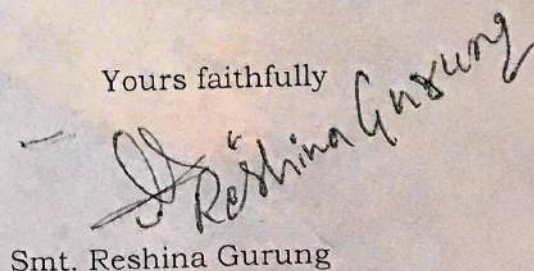 Yours faithfully
Reshina Gurung
Smt. Reshina Gurung